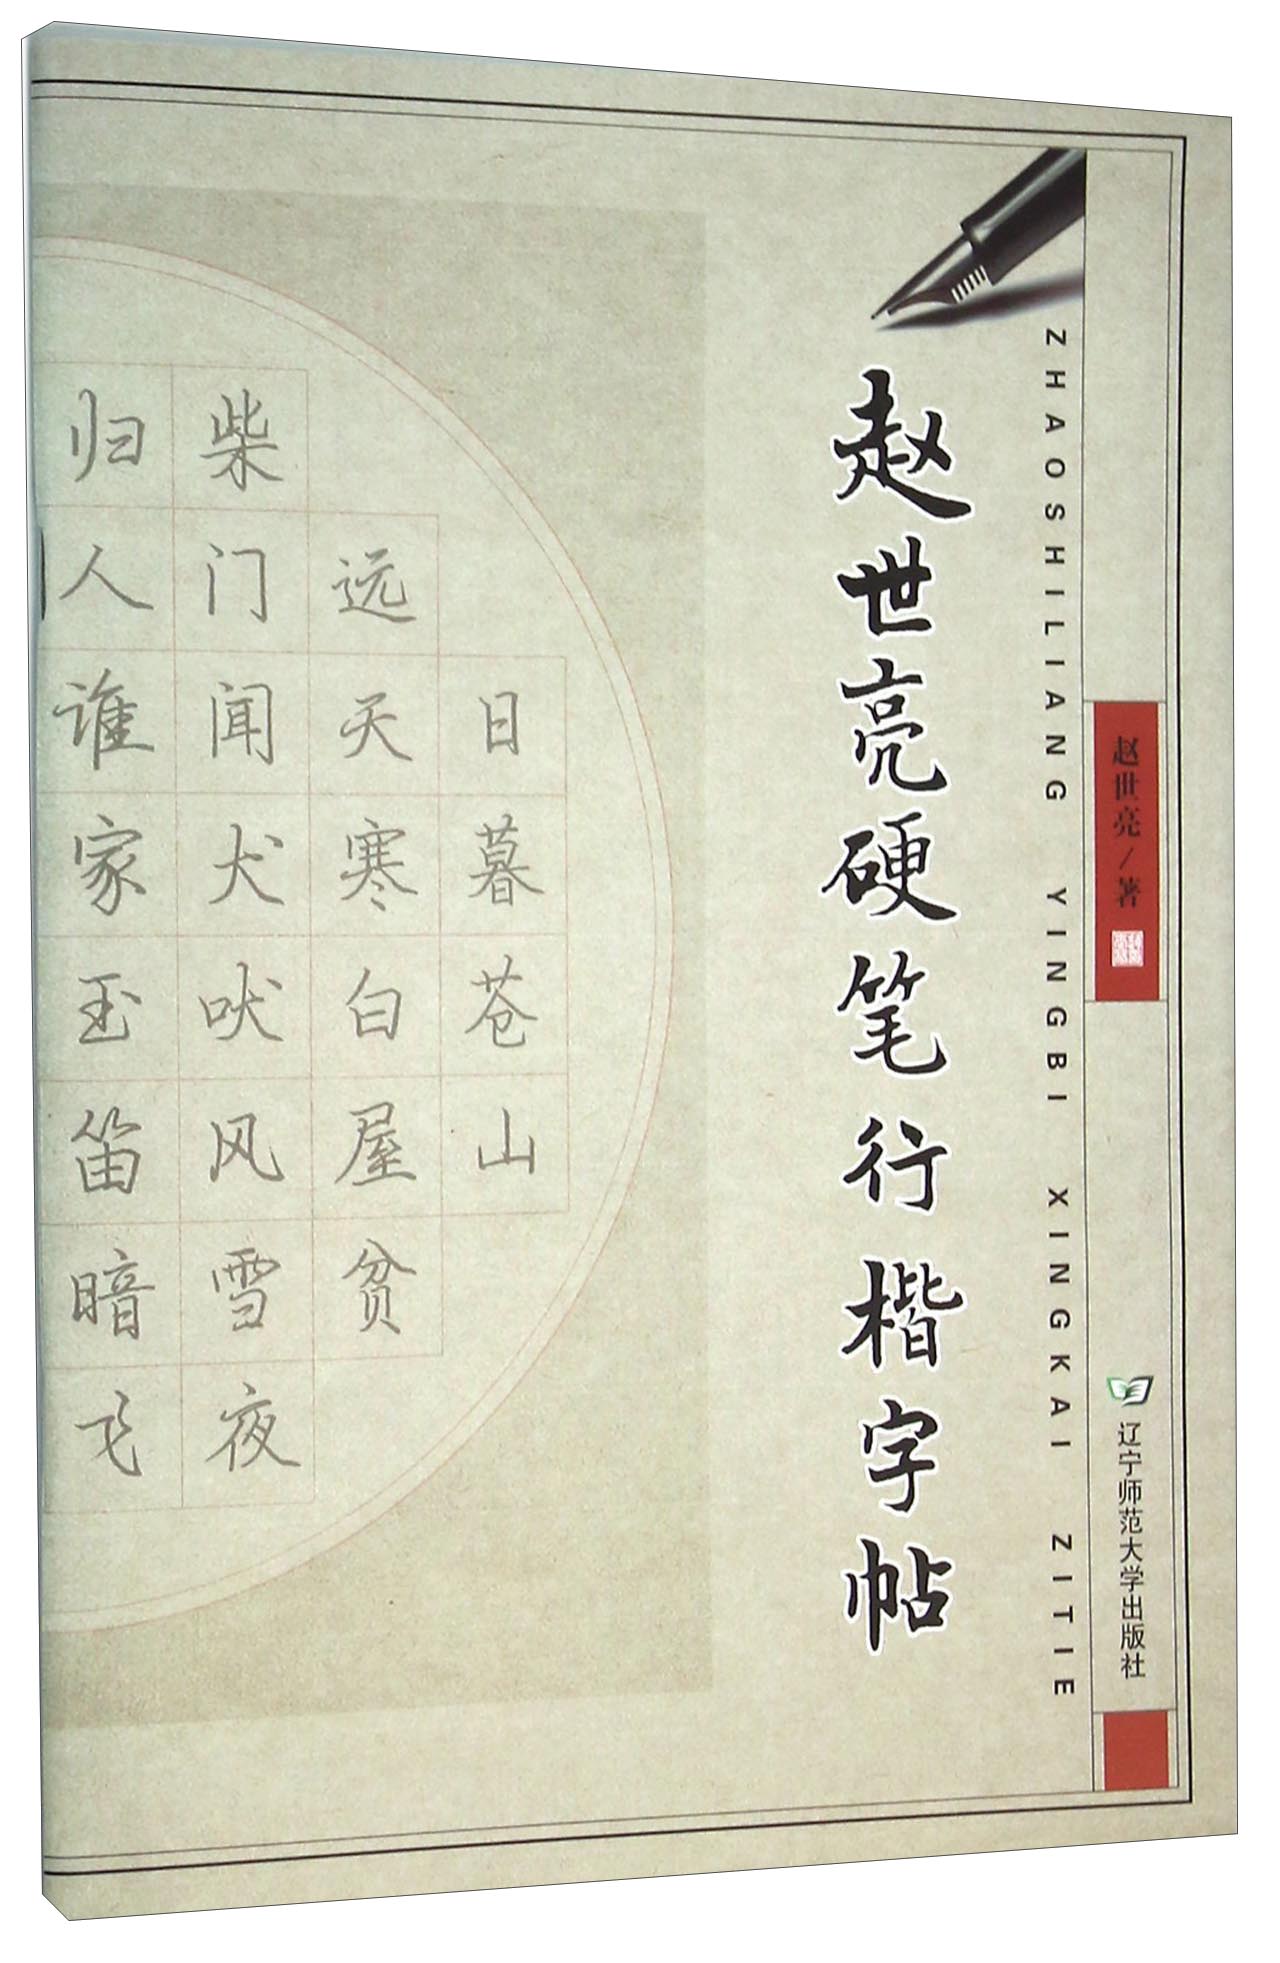 赵世亮硬笔行楷字帖
ZHAOSHILIANG YINGBI XINGKAI ZITIE
赵世亮/著
辽宁师范大学出版社
日暮苍山
远天寒白屋贫
柴门闻犬吠风雪夜
归人谁家玉笛暗飞